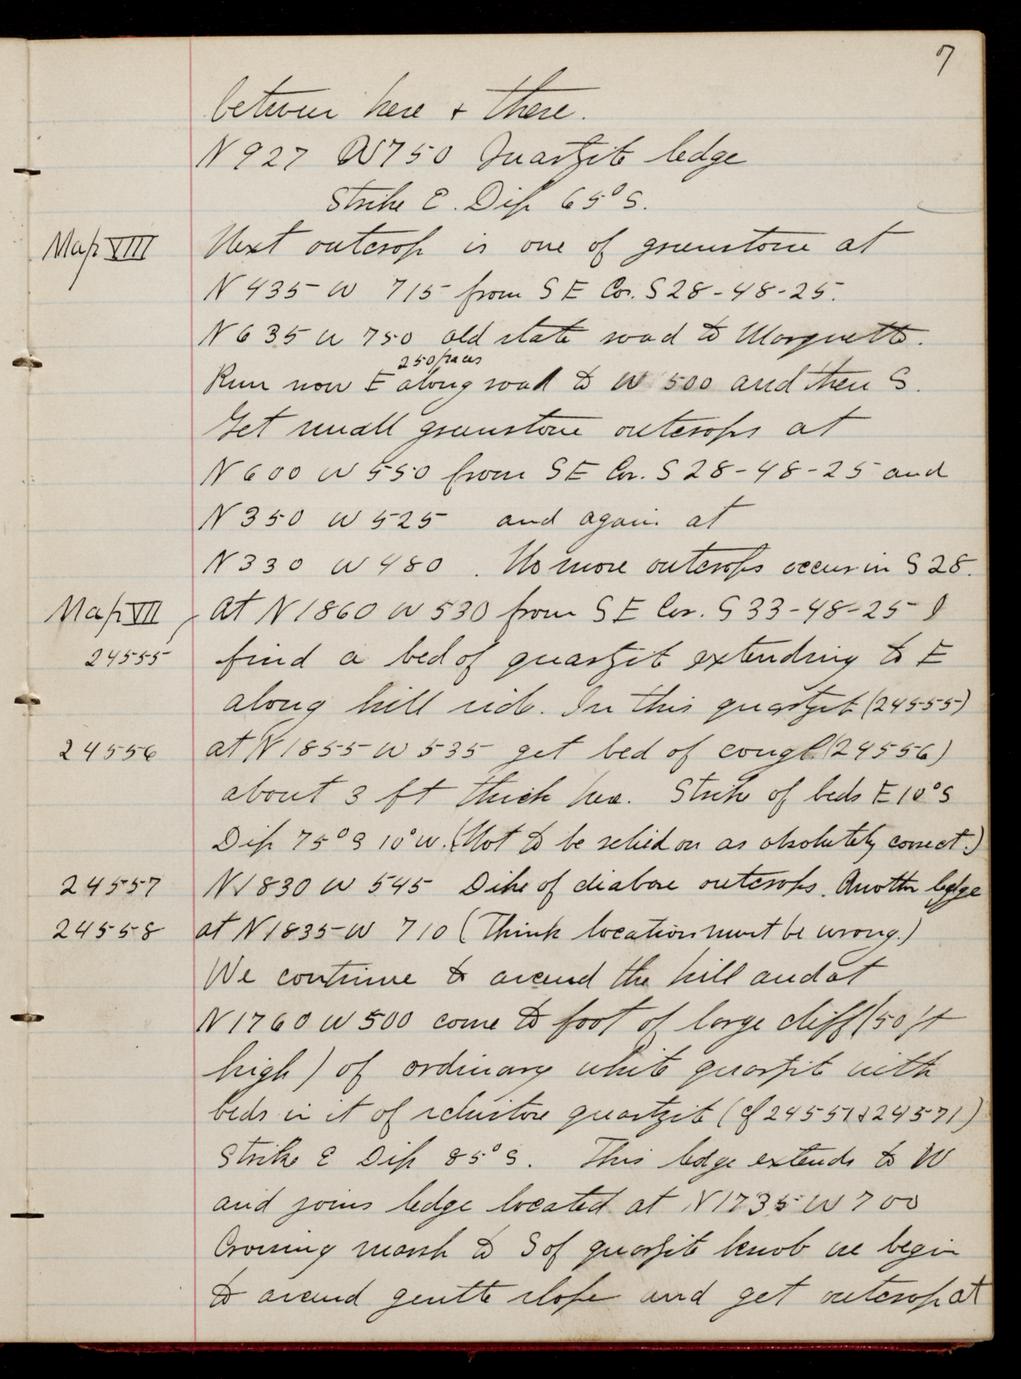 7
between here + there.
N 927 W 750 Quartzite ledge
Strike E. Dip 65° S.
Map VIII Next outcrop is one of greenstone at
N 435 W 715 from SE Cor. S 28-48-25.
N 635 W 750 old state road to Marquette.
250 paces
Run now E along road to W 500 and then S.
Get small greenstone outcrops at
N 600 W 550 from SE Cor. S 28-48-25 and
N 350 W 525 and again at
N 330 W 480. No more outcrops occur in S 28.
Map VII At N 1860 W 530 from SE Cor. S 33-48-25 I
24555 find a bed of quartzite extending to E
along hill side. In this quartzite (24555)
24556 at N 1855 W 535 get bed of congl (24556)
about 3 ft thick here. Strike of beds E 10° S
Dip 75° S 10° W. (Not to be relied on as absolutely correct.)
24557 N 1830 W 545 Dike of diabase outcrops. Another ledge
24558 at N 1835 W 710 (Think location must be wrong.)
We continue to ascend the hill and at
N 1760 W 500 come to foot of large cliff (50 ft
high) of ordinary white quartzite with
beds in it of schistose quartzite (cf 24551 & 24571)
Strike E Dip 85° S. This ledge extends to W
and joins ledge located at N 1735 W 700
Crossing marsh to S of quartzite knob we begin
to ascend gentle slope and get outcrop at